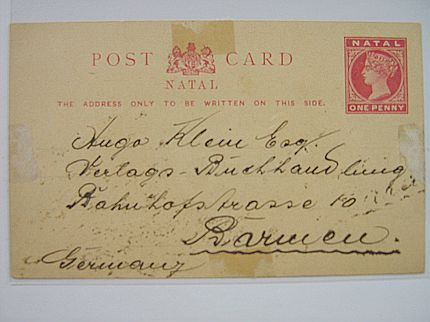 POST CARD
NATAL
THE ADDRESS ONLY TO BE WRITTEN ON THIS SIDE.
NATAL
ONE PENNY
Hugo Klein Esq.
Verlags-Buchhandlung
Bahnhofstrasse 10
Barmen.
Germany